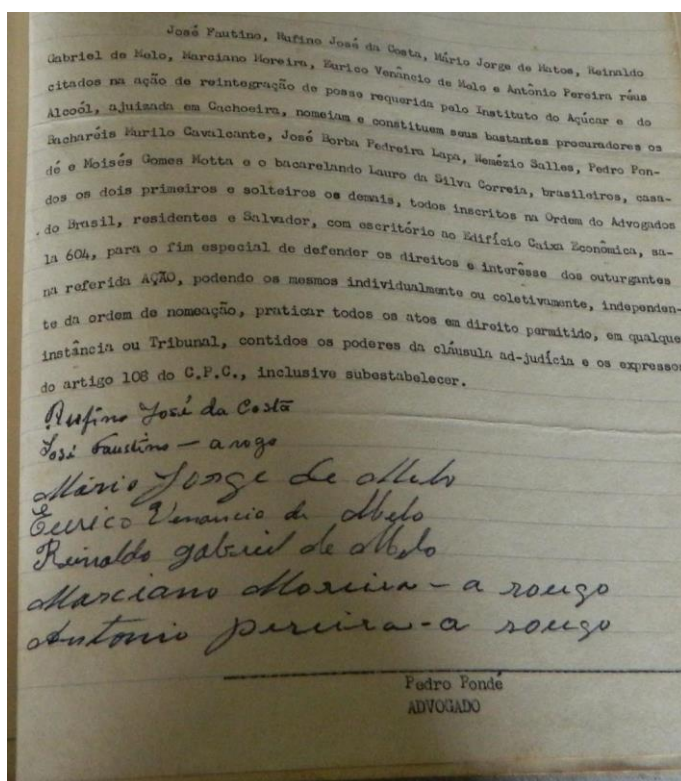 José Fautino, Rufino José da Costa, Mário Jorge de Matos, Reinaldo
Gabriel de Melo, Marciano Moreira, Eurico Venâncio de Melo e Antônio Pereira réus
citados na ação de reintegração de posse requerida pelo Instituto do Açúcar e do
Alcoól, ajuizada em Cachoeira, nomeiam e constituem seus bastantes procuradores os
Bacharéis Murilo Cavalcante, José Borba Pedreira Lapa, Nemézio Salles, Pedro Pon-
dé e Moisés Gomes Motta e o bacarelando Lauro da Silva Correia, brasileiros, casa-
dos os dois primeiros e solteiros os demais, todos inscritos na Ordem do Advogados
do Brasil, residentes e Salvador, com escritório ao Edifício Caixa Econômica, sa-
la 604, para o fim especial de defender os direitos e interêsse dos outurgantes
na referida AÇÃO, podendo os mesmos individualmente ou coletivamente, independen-
te da ordem de nomeação, praticar todos os atos em direito permitido, em qualque
instância ou Tribunal, contidos os poderes da cláusula ad-judícia e os expressos
do artigo 108 do C.P.C., inclusive subestabelecer.
Rufino José da Costa
José Faustino - a rogo
Mário Jorge de Melo
Eurico Venancio de Melo
Reinaldo gabriel de Melo
Marciano Moreira - a rougo
Antonio pereira - a rougo
Pedro Pondé
ADVOGADO